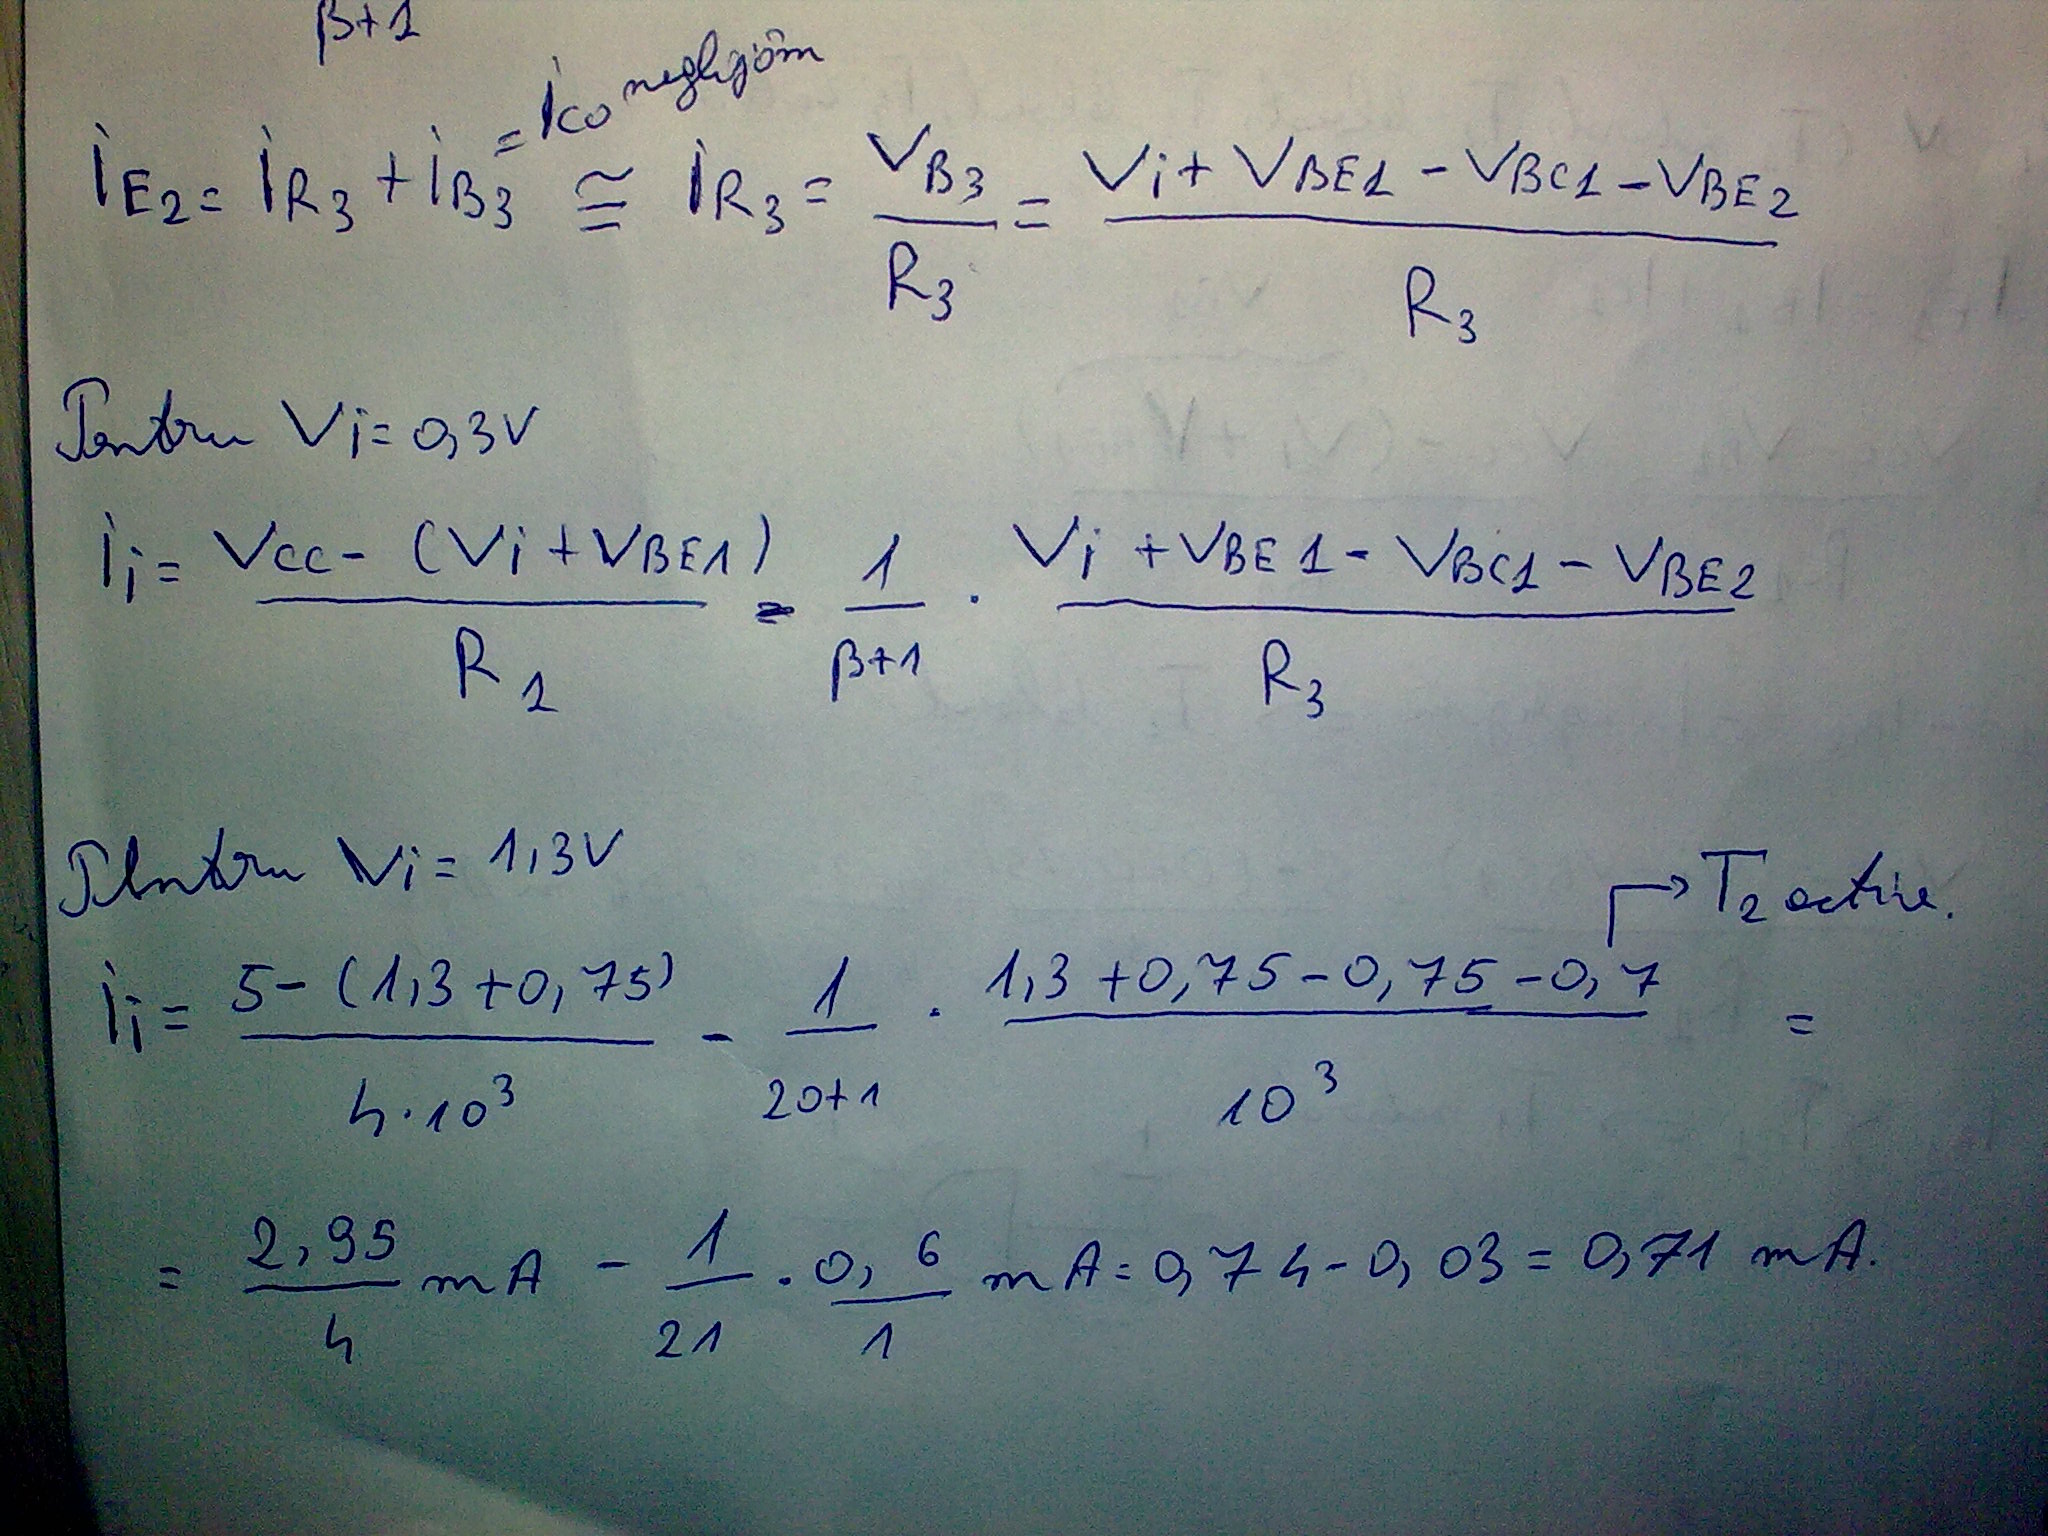 β+1
= ico neglijăm
iE2 = iR3 + iB3 ≅ iR3 = VB3 / R3 = (Vi + VBE1 - VBC1 - VBE2) / R3
Pentru Vi = 0,3V
ii = (VCC - (Vi + VBE1)) / R1 - 1 / (β+1) · (Vi + VBE1 - VBC1 - VBE2) / R3
Pentru Vi = 1,3V
→ T2 active.
ii = (5 - (1,3 + 0,75)) / (4·10³) - 1 / (20+1) · (1,3 + 0,75 - 0,75 - 0,7) / 10³ =
= 2,95 / 4 mA - 1 / 21 · 0,6 / 1 mA = 0,74 - 0,03 = 0,71 mA.